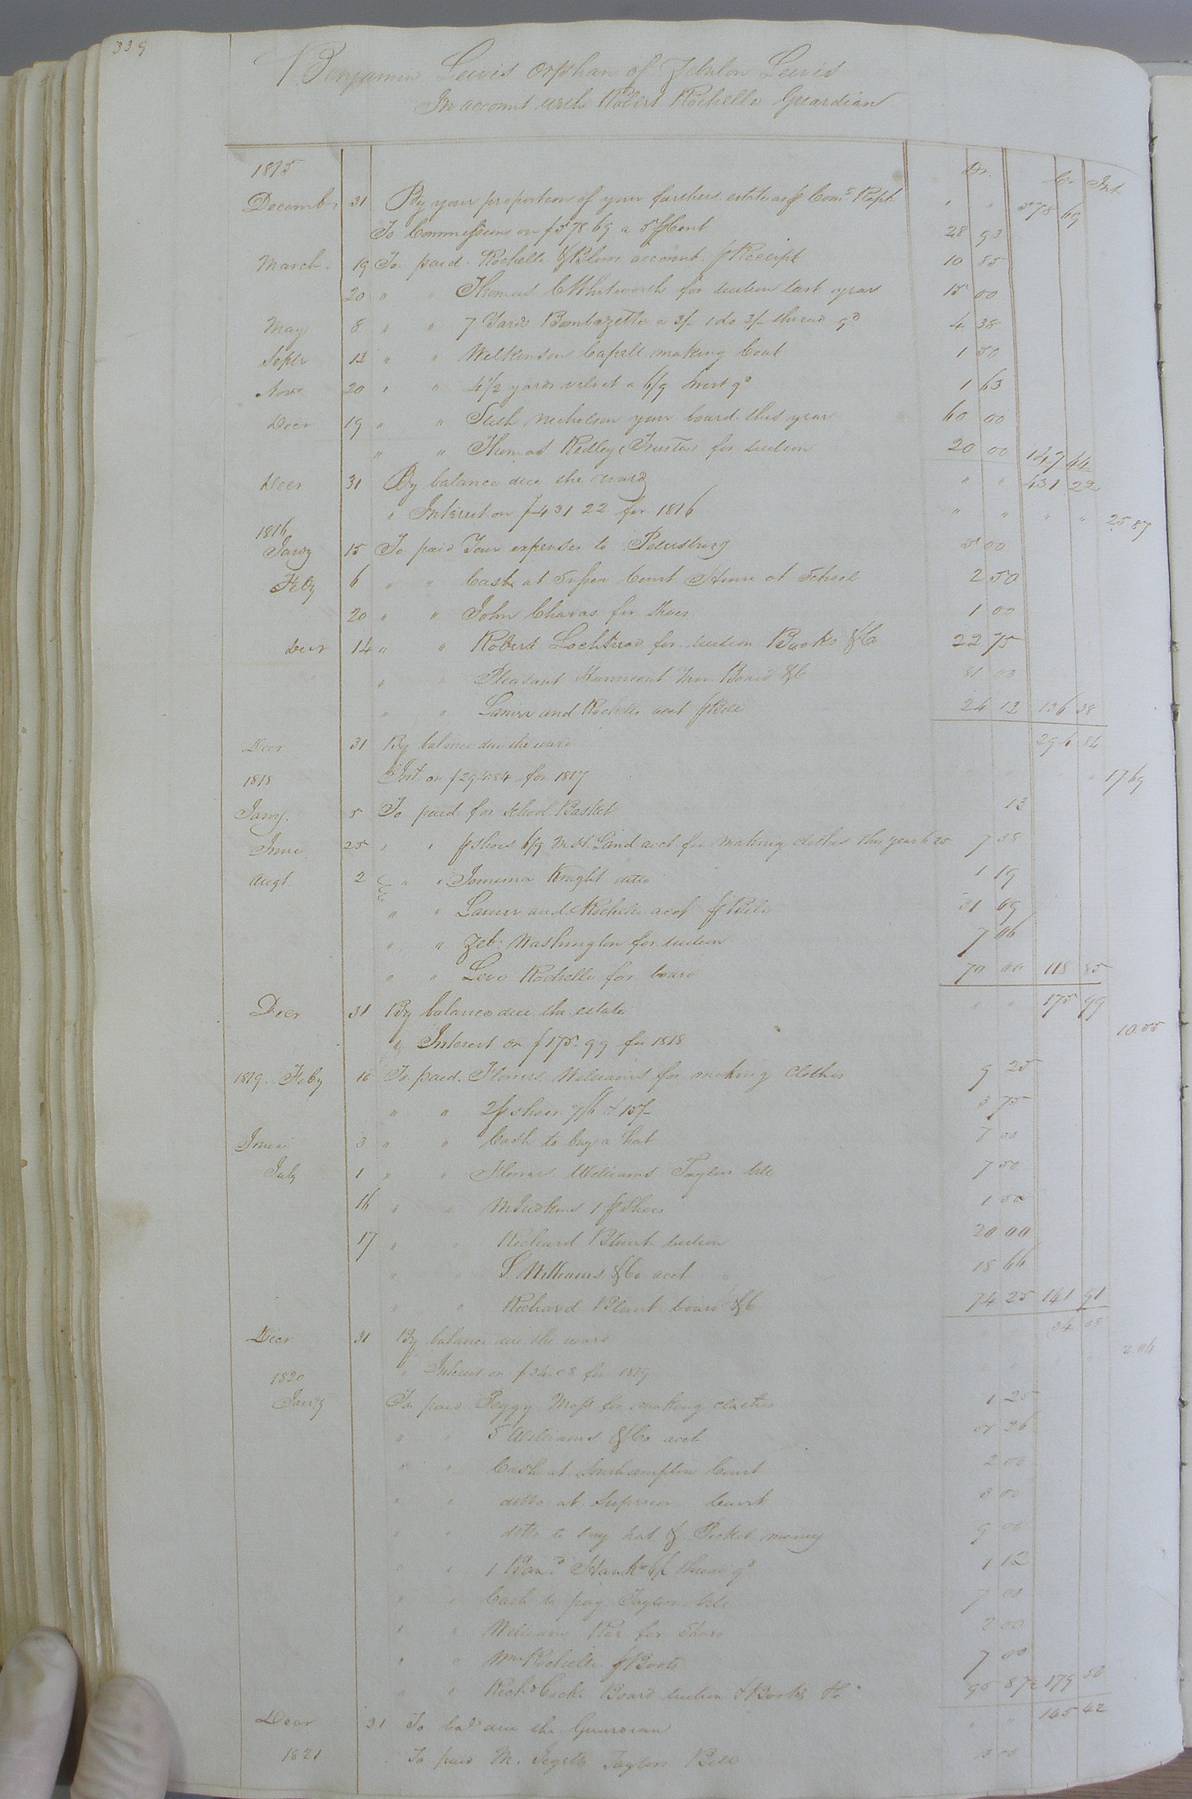 339
Benjamin Lewis Orphan of Zebulon Lewis
In account with Robert Rochelle Guardian
Dr. Cr. Int.
1815
December 31 By your proportion of your fathers estate as p Com.s Rept " " 578 69
To Commissions on $578 69 a 5 p Cent 28 93
March 19 To paid Rochelle & Blow account p Receipt 10 85
20 " " Thomas C Whitworth for tuition last year 15 00
May 8 " " 7 Yards Bombazette a 3/ 1 do 3/ thread 9d 4 38
Septr 13 " " Wilkinson Capell making Coat 1 50
Novr 20 " " 4 1/2 yards velvet a 6/9 1 63
Decr 19 " " Nicholson your board this year 60 00
" " Thomas Ridley Trustee for tuition 20 00 147 44
Decr 31 By balance due the ward " " 431 22
" Interest on $431 22 for 1816 " " " " 25 87
1816
Jany 15 To paid Your expenses to Petersburg 5 00
Feby 6 " " Cash at Super Court & at School 2 50
20 " " John Chavas for Shoes 1 00
Decr 14 " " Robert for tuition Books &C 22 75
" " Pleasant Board &C 81 00
" " Lanier and Rochelle acct p Bill 24 12 136 38
Decr 31 By balance due the ward 294 84
Int on $294.84 for 1817 " 17 69
1818
Jany. 5 To paid for School Basket 13
June 25 " " p shoes 6/9 Land acct for making clothes this year 6 25 7 38
Augt 2 " " Jemima Knight ditto 1 19
" " Lanier and Rochelle acct p Bill 31 09
" " Zeb: Washington for tuition 7 06
" " Levi Rochelle for board 70 00 118 85
Decr 31 By balance due the estate " " 175 99
" Interest on $175.99 for 1818 10 55
1819. Feby 16 To paid Williams for making clothes 9 25
" " 2 p shoes 7/6 & 15/ 3 75
June 3 " " Cash to buy a hat 7 00
July 1 " " Williams Taylor bill 7 50
16 " " 1 p Shoes 1 50
17 " " Richard Blunt tuition 20 00
" " S. Williams & Co acct 18 66
" " Richard Blunt board &C 74 25 141 91
Decr 31 By balance due the ward 34 08
" Interest on $34.08 for 1819 " 2 04
1820
Jany To paid Peggy Moss for making clothes 1 25
" " S Williams & Co acct 26
" " Cash at Southampton Court 2 00
" " ditto at Superior Court 3 00
" " ditto to buy hat & Pocket money 9 00
" " 1 Ban.d Hank 6/ thread 9d 1 12
" " Cash to pay Taylor bill 7 00
" " Williams for Shoes 2 00
" " Wm Rochelle p Boots 7 00
" " Richd Cocke Board tuition & Books &c 95 87 1/2 179 50
Decr 31 To bale due the Guardian " " 145 42
1821 To paid M. Taylors Bill 3 00